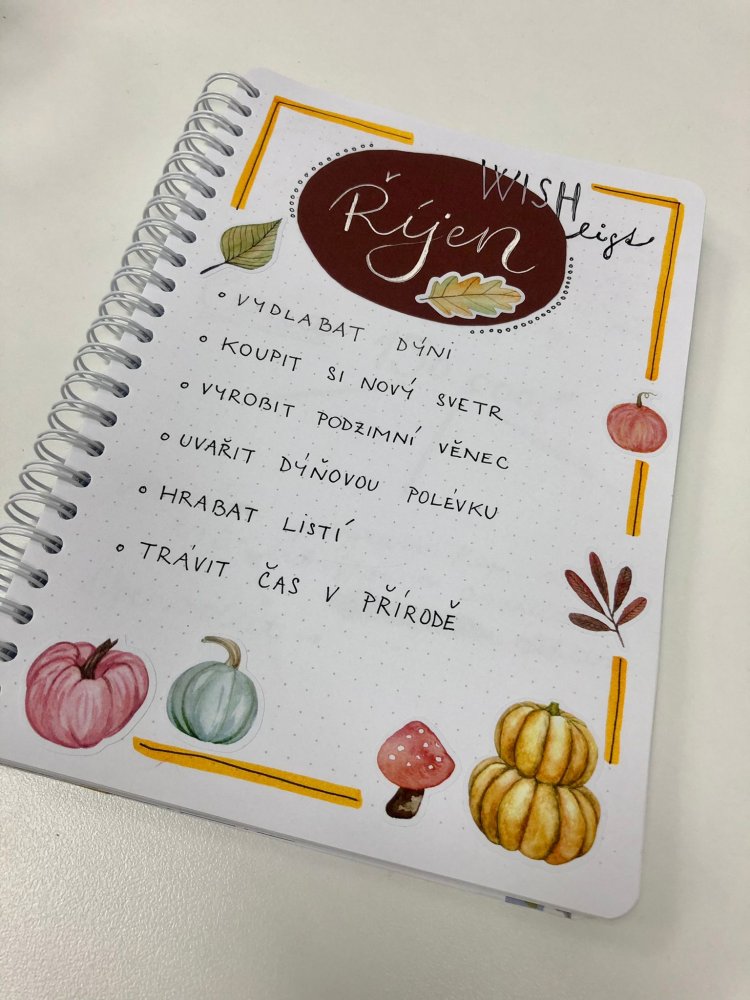 WISH
Říjen
leist
VYDLABAT DÝNI
KOUPIT SI NOVÝ SVETR
VYROBIT PODZIMNÍ VĚNEC
UVAŘIT DÝŇOVOU POLÉVKU
HRABAT LISTÍ
TRÁVIT ČAS V PŘÍRODĚ